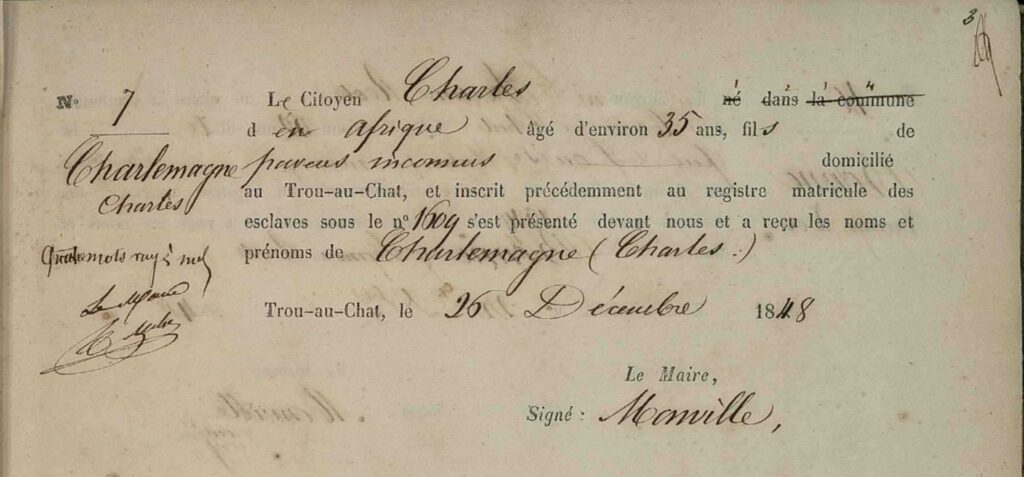 3
N° 7 Le Citoyen Charles né dans la commune
d en afrique âgé d'environ 35 ans, fils de
Charlemagne parens inconnus domicilié
Charles au Trou-au-Chat, et inscrit précédemment au registre matricule des
esclaves sous le n° 1609 s'est présenté devant nous et a reçu les noms et
Quatre mots rayés nuls prénoms de Charlemagne (Charles.)
Le Maire
Trou-au-Chat, le 26 Décembre 1848
Le Maire,
Signé : Monville,